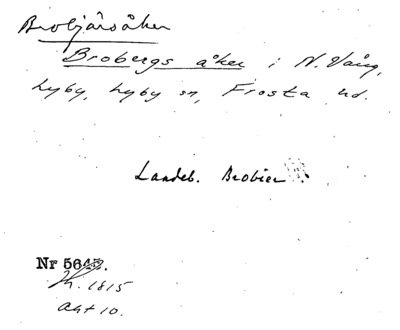 Brobjärsåker
Brobergs åker i N. Vång,
Lyby, Lyby sn, Frosta hd.
Landeb. Brobier
Nr 5645.
K. 1815
akt 10.